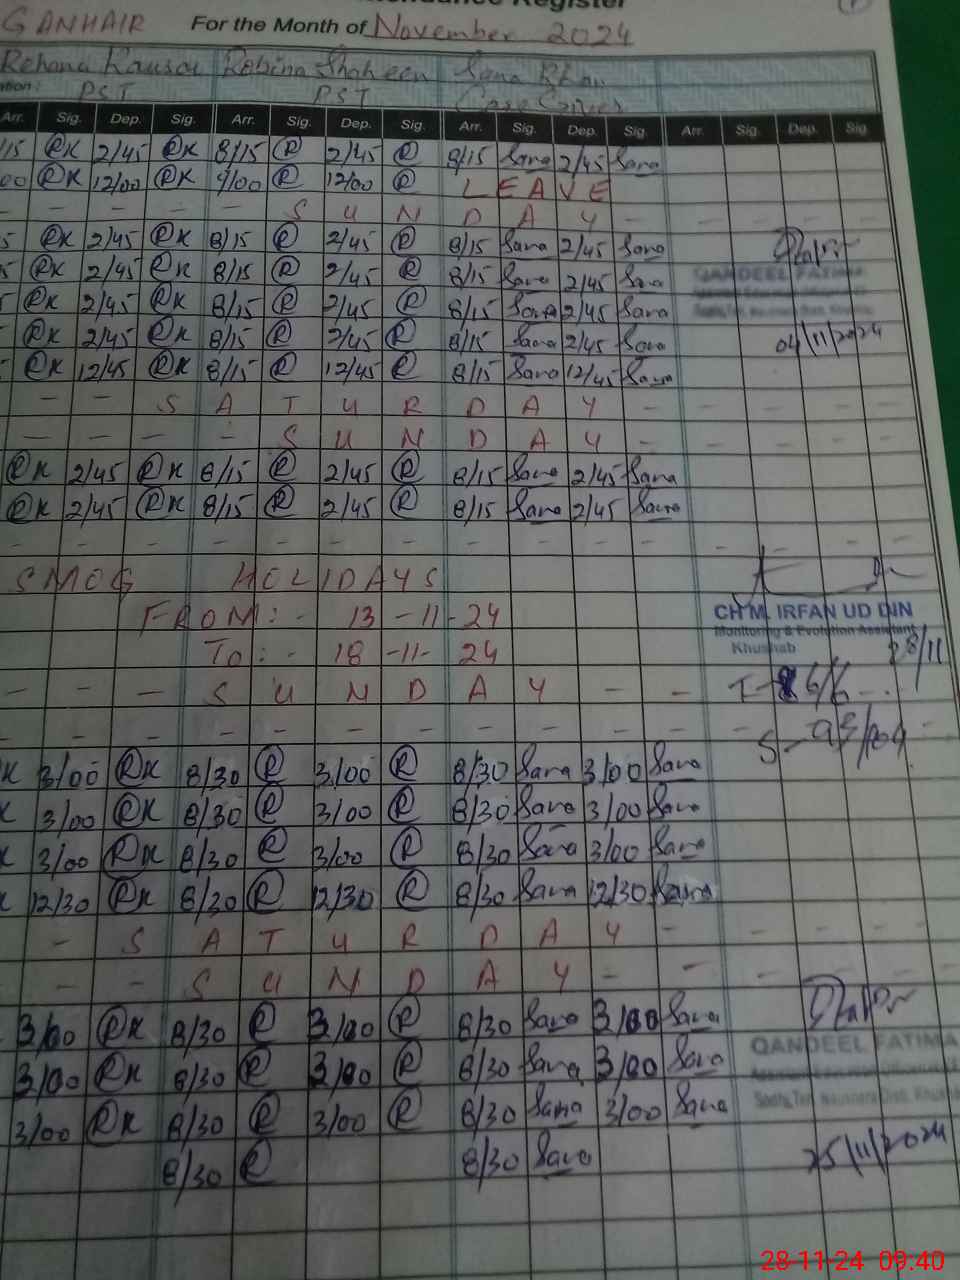 Register
GANHAIR For the Month of November 2024
Rehana Kausar Robina Shaheen Sana Khan
PST PST Care Giver
Arr. Sig. Dep. Sig. Arr. Sig. Dep. Sig. Arr. Sig. Dep. Sig. Arr. Sig. Dep. Sig
15 RK 2/45 RK 8/15 R 2/45 R 8/15 Sana 2/45 Sana
00 RK 12/00 RK 9/00 R 12/00 R LEAVE
- - - - - S U N D A Y - - - - -
5 RK 2/45 RK 8/15 R 2/45 R 8/15 Sana 2/45 Sana
5 RK 2/45 RK 8/15 R 2/45 R 8/15 Sana 2/45 Sana QANDEEL FATIMA
5 RK 2/45 RK 8/15 R 2/45 R 8/15 Sana 2/45 Sana
RK 2/45 RK 8/15 R 2/45 R 8/15 Sana 2/45 Sana 04/11/2024
RK 12/45 RK 8/15 R 12/45 R 8/15 Sana 12/45 Sana
- - S A T U R D A Y - - - - -
- - - - S U N D A Y - - - - -
RK 2/45 RK 8/15 R 2/45 R 8/15 Sana 2/45 Sana
RK 2/45 RK 8/15 R 2/45 R 8/15 Sana 2/45 Sana
- - - - - - - - - - - - - - -
SMOG HOLIDAYS
FROM:- 13 -11-24 CH M. IRFAN UD DIN
Monitoring & Evolution Assistant
To:- 18 -11- 24 Khushab 28/11
- - - S U N D A Y - - T-
- - - - - - - - - - - S-
K 3/00 RK 8/30 R 3/00 R 8/30 Sana 3/00 Sana
K 3/00 RK 8/30 R 3/00 R 8/30 Sana 3/00 Sana
K 3/00 RK 8/30 R 3/00 R 8/30 Sana 3/00 Sana
K 12/30 RK 8/30 R 12/30 R 8/30 Sana 12/30 Sana
- S A T U R D A Y - - - - -
- - S U N D A Y - - - - -
3/00 RK 8/30 R 3/00 R 8/30 Sana 3/00 Sana
QANDEEL FATIMA
3/00 RK 8/30 R 3/00 R 8/30 Sana 3/00 Sana
3/00 RK 8/30 R 3/00 R 8/30 Sana 3/00 Sana
8/30 R 8/30 Sana 25/11/2024
28-11-24 09:40